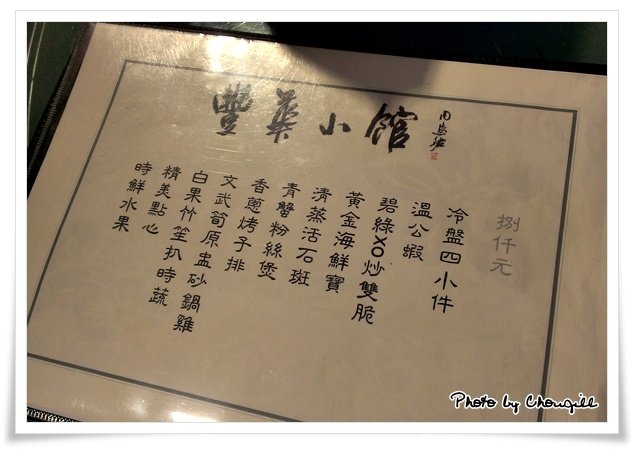 豐華小館
捌仟元
冷盤四小件
溫公蝦
碧綠XO炒雙脆
黃金海鮮寶
清蒸活石班
青蟹粉絲煲
香蔥烤子排
文武筍原盅砂鍋雞
白果竹笙扒時蔬
精美點心
時鮮水果
Photo by Chouqill